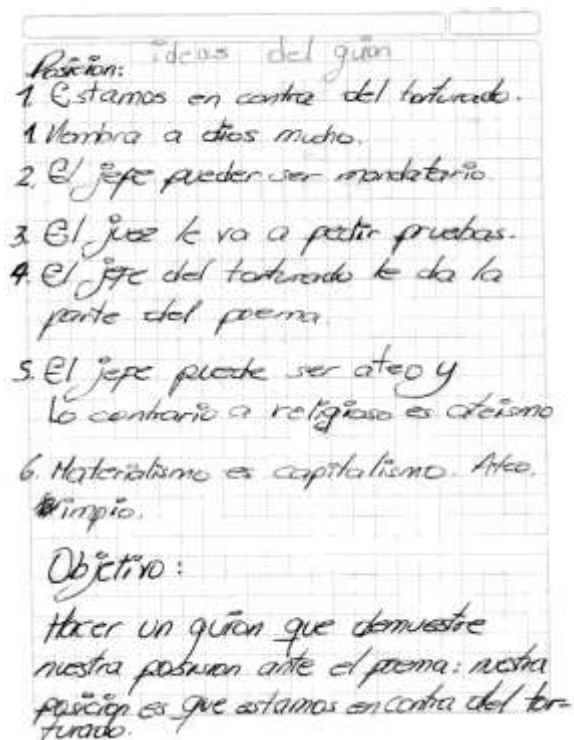 ideas del guion
Posicion:
1. Estamos en contra del torturado.
1 Nombra a dios mucho.
2. El jefe pueder ser mandatario
3. El juez le va a pedir pruebas.
4. El jefe del torturado le da la
parte del poema.
5. El jefe puede ser ateo y
Lo contrario a religioso es ateismo
6. Materialismo es capitalismo. Ateo.
impio.
Objetivo:
Hacer un guion que demuestre
nuestra posision ante el poema: nuestra
posición es que estamos en contra del tor=
turado.